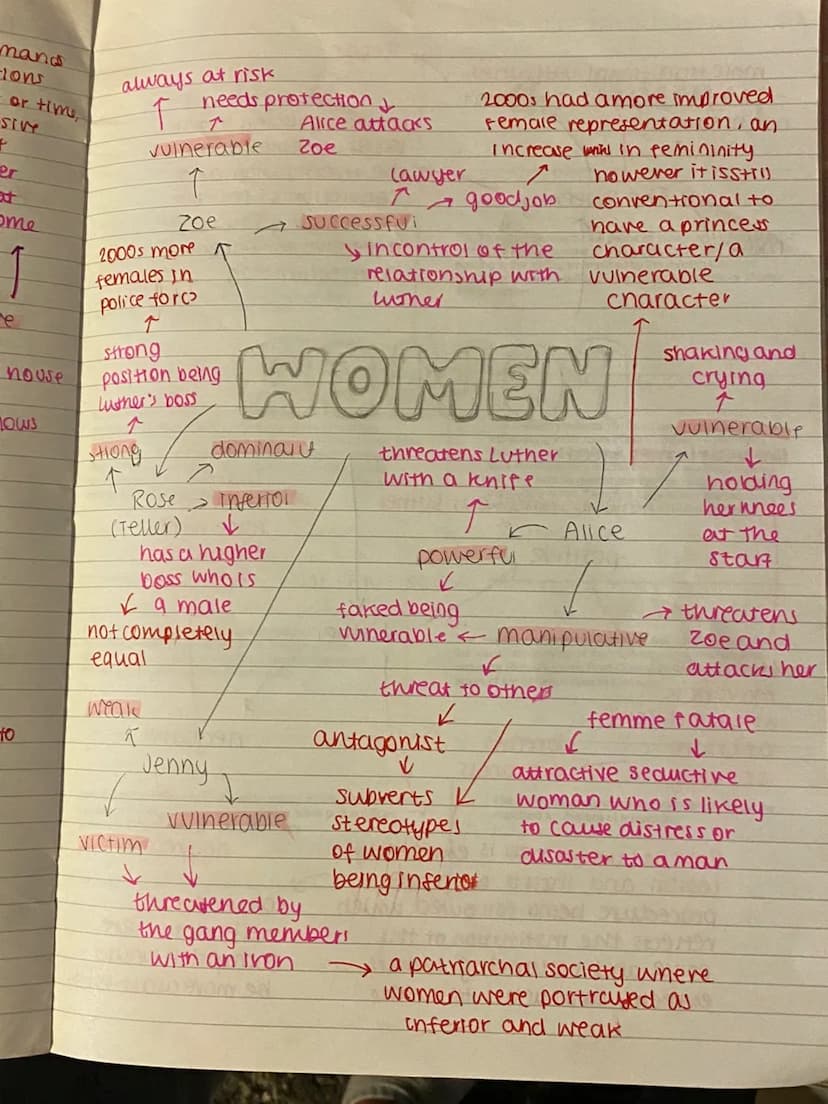 mands
ions
or time,
sive
er
at
ome
e
house
lows
to
always at risk
needs protection
Alice attacks
Zoe
vulnerable
Zoe
successful
Lawyer
good job
in control of the
relationship with
luther
2000s had a more improved
female representation, an
increase in femininity
however it is still
conventional to
have a princess
character/a
vulnerable
character
2000s more
females in
police force
strong
position being
luther's boss
strong
dominant
Rose
(Teller)
inferior
has a higher
boss who is
a male
not completely
equal
WOMEN
shaking and
crying
vulnerable
holding
her knees
at the
start
threatens Luther
with a knife
Alice
powerful
faked being
vulnerable
manipulative
threatens
Zoe and
attacks her
threat to others
antagonist
subverts
stereotypes
of women
being inferior
femme fatale
attractive seductive
woman who is likely
to cause distress or
disaster to a man
weak
Jenny
victim
vulnerable
threatened by
the gang members
with an iron
a patriarchal society where
women were portrayed as
inferior and weak